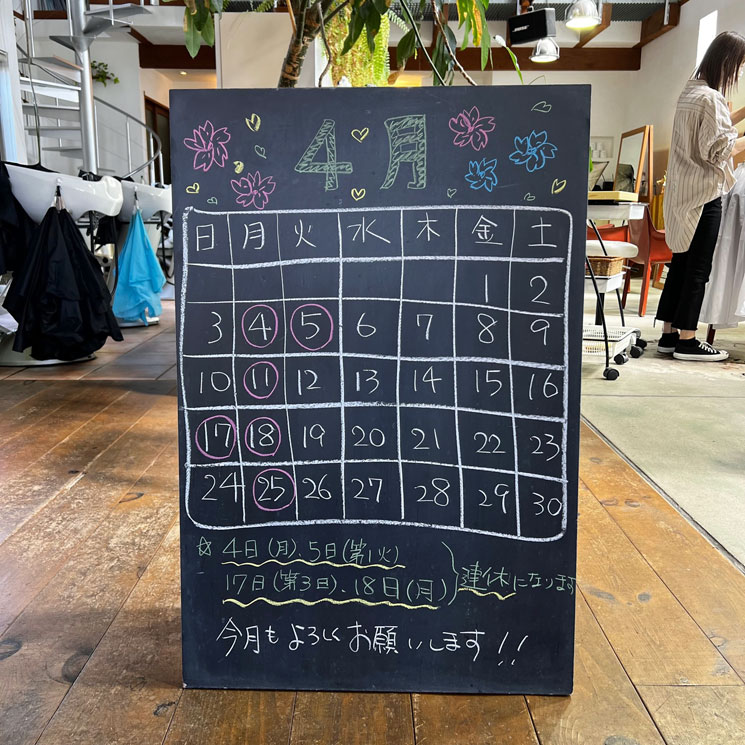 4月
日 月 火 水 木 金 土
1 2
3 4 5 6 7 8 9
10 11 12 13 14 15 16
17 18 19 20 21 22 23
24 25 26 27 28 29 30
☆ 4日(月)、5日(第1火)
17日(第3日)、18日(月) } 連休になります
今月もよろしくお願いします!!
BOSE